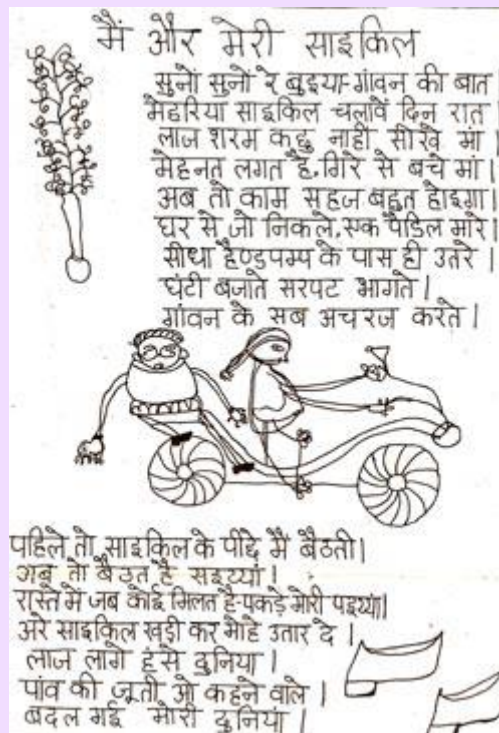 मैं और मेरी साइकिल
सुनों सुनों रे बुइया-गांवन की बात
मेहरिया साइकिल चलावें दिन रात
लाज शरम कहु नाही सीखे मां
मेहनत लगत है, गिरे से बचे मां।
अब तो काम सहज बहुत होइगा।
घर से जो निकले, एक पैडिल मारे।
सीधा हैण्डपम्प के पास ही उतरे।
घंटी बजाते सरपट भागते।
गांवन के सब अचरज करते।
पहिले तो साइकिल के पीछे मैं बैठती।
अब तो बैठत है सइय्यां।
रास्ते में जब कोई मिलत है-पकड़े मोरी पइय्यां।
अरे साइकिल खड़ी कर मोहे उतार दे।
लाज लागे हंसे दुनिया।
पांव की जूती ओ कहने वाले।
बदल गई मोरी दुनियां।